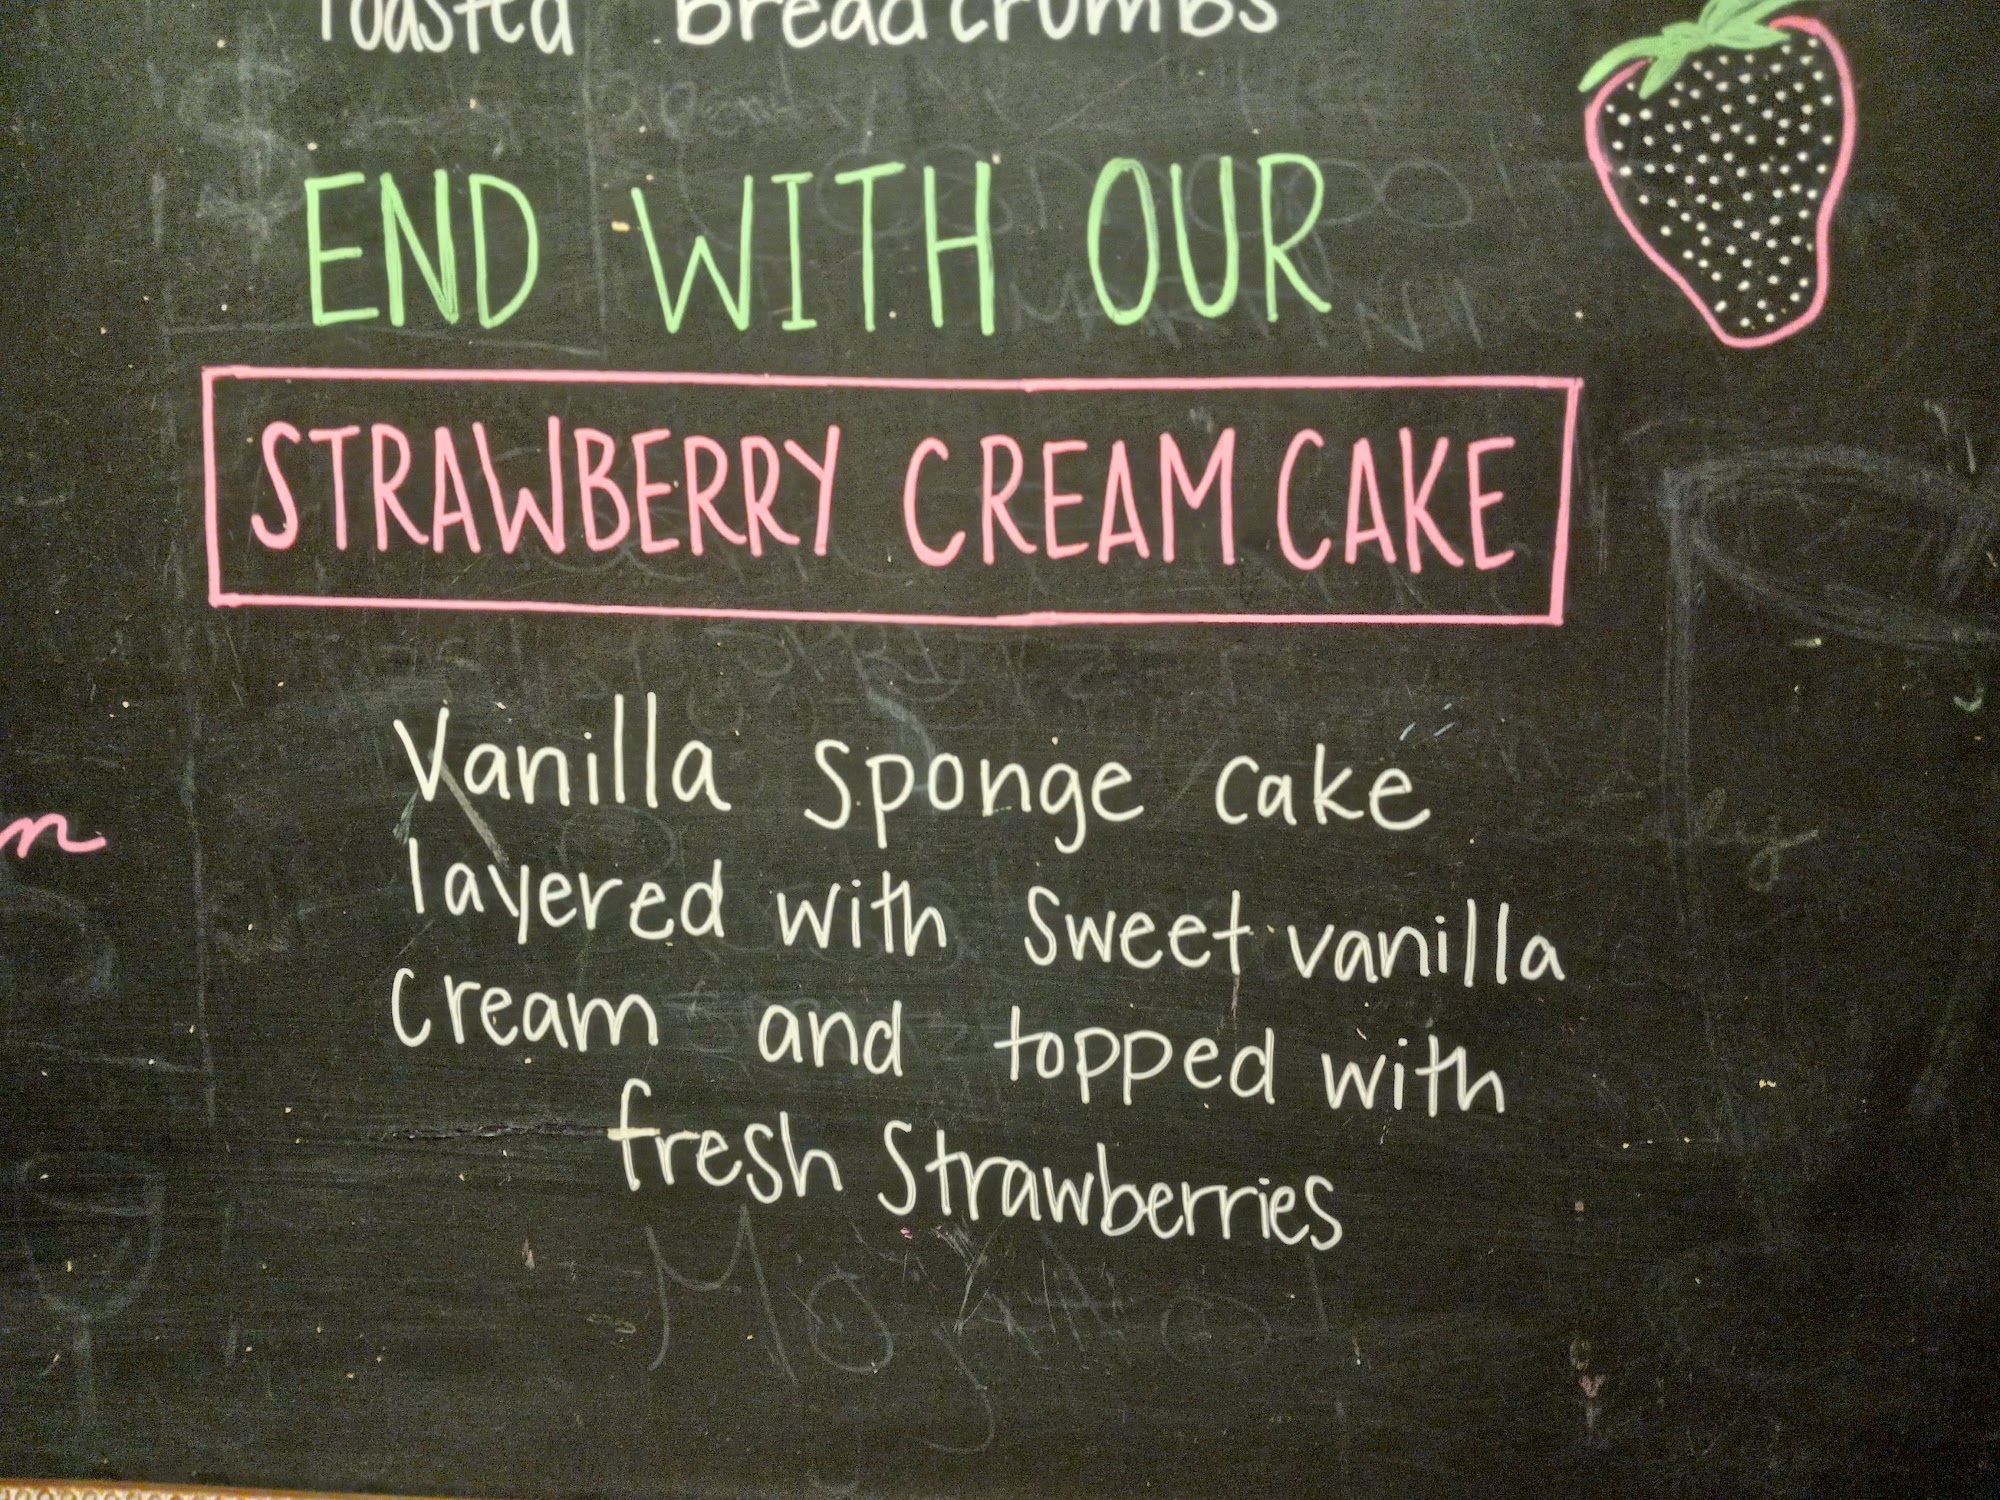 Toasted Breadcrumbs
END WITH OUR
STRAWBERRY CREAM CAKE
Vanilla Sponge cake
layered with Sweet vanilla
Cream and topped with
fresh Strawberries
n
Mojito